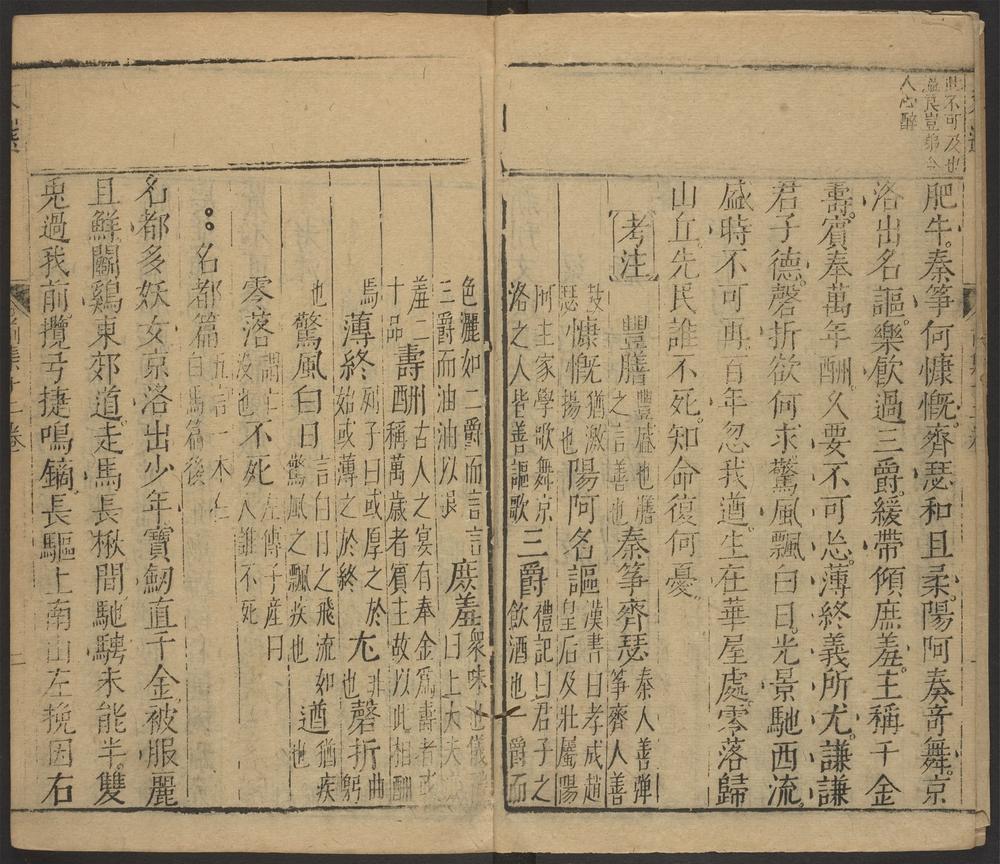 此不可及也
溫良豈弟令
人心醉
肥牛秦箏何慷慨齊瑟和且柔陽阿奏竒舞京
洛出名謳樂飲過三爵緩帶傾庶羞主稱千金
壽賓奉萬年酬久要不可忘薄終義所尤謙謙
君子德磬折欲何求驚風飄白日光景馳西流
盛時不可再百年忽我遒生在華屋處零落歸
山丘先民誰不死知命復何憂
考注 豐膳豐盛也膳之言善也秦箏齊瑟秦人善彈箏齊人善
鼓瑟慷慨猶激揚也陽阿名謳漢書曰孝成趙皇后及壯屬陽
阿主家學歌舞京洛之人皆善謳歌三爵禮記曰君子之飲酒也一爵而
色灑如二爵而言言三爵而油油以退庶羞衆味也儀曰上大夫
羞二十品壽酬古人之宴有奉金爲壽者或稱萬歲者賓主故以此相酬
焉薄終列子曰或厚之於始或薄之於終尤非也磬折曲躬
也驚風白日言白日之飛流如驚風之飄疾也遒猶疾也
零落謂亡沒也不死左傳子產曰人誰不死
名都篇五言一本在白馬篇後
名都多妖女京洛出少年寶劒直千金被服麗
且鮮鬬鷄東郊道走馬長楸間馳騁未能半雙
兎過我前攬弓捷鳴鏑長驅上南山左挽因右